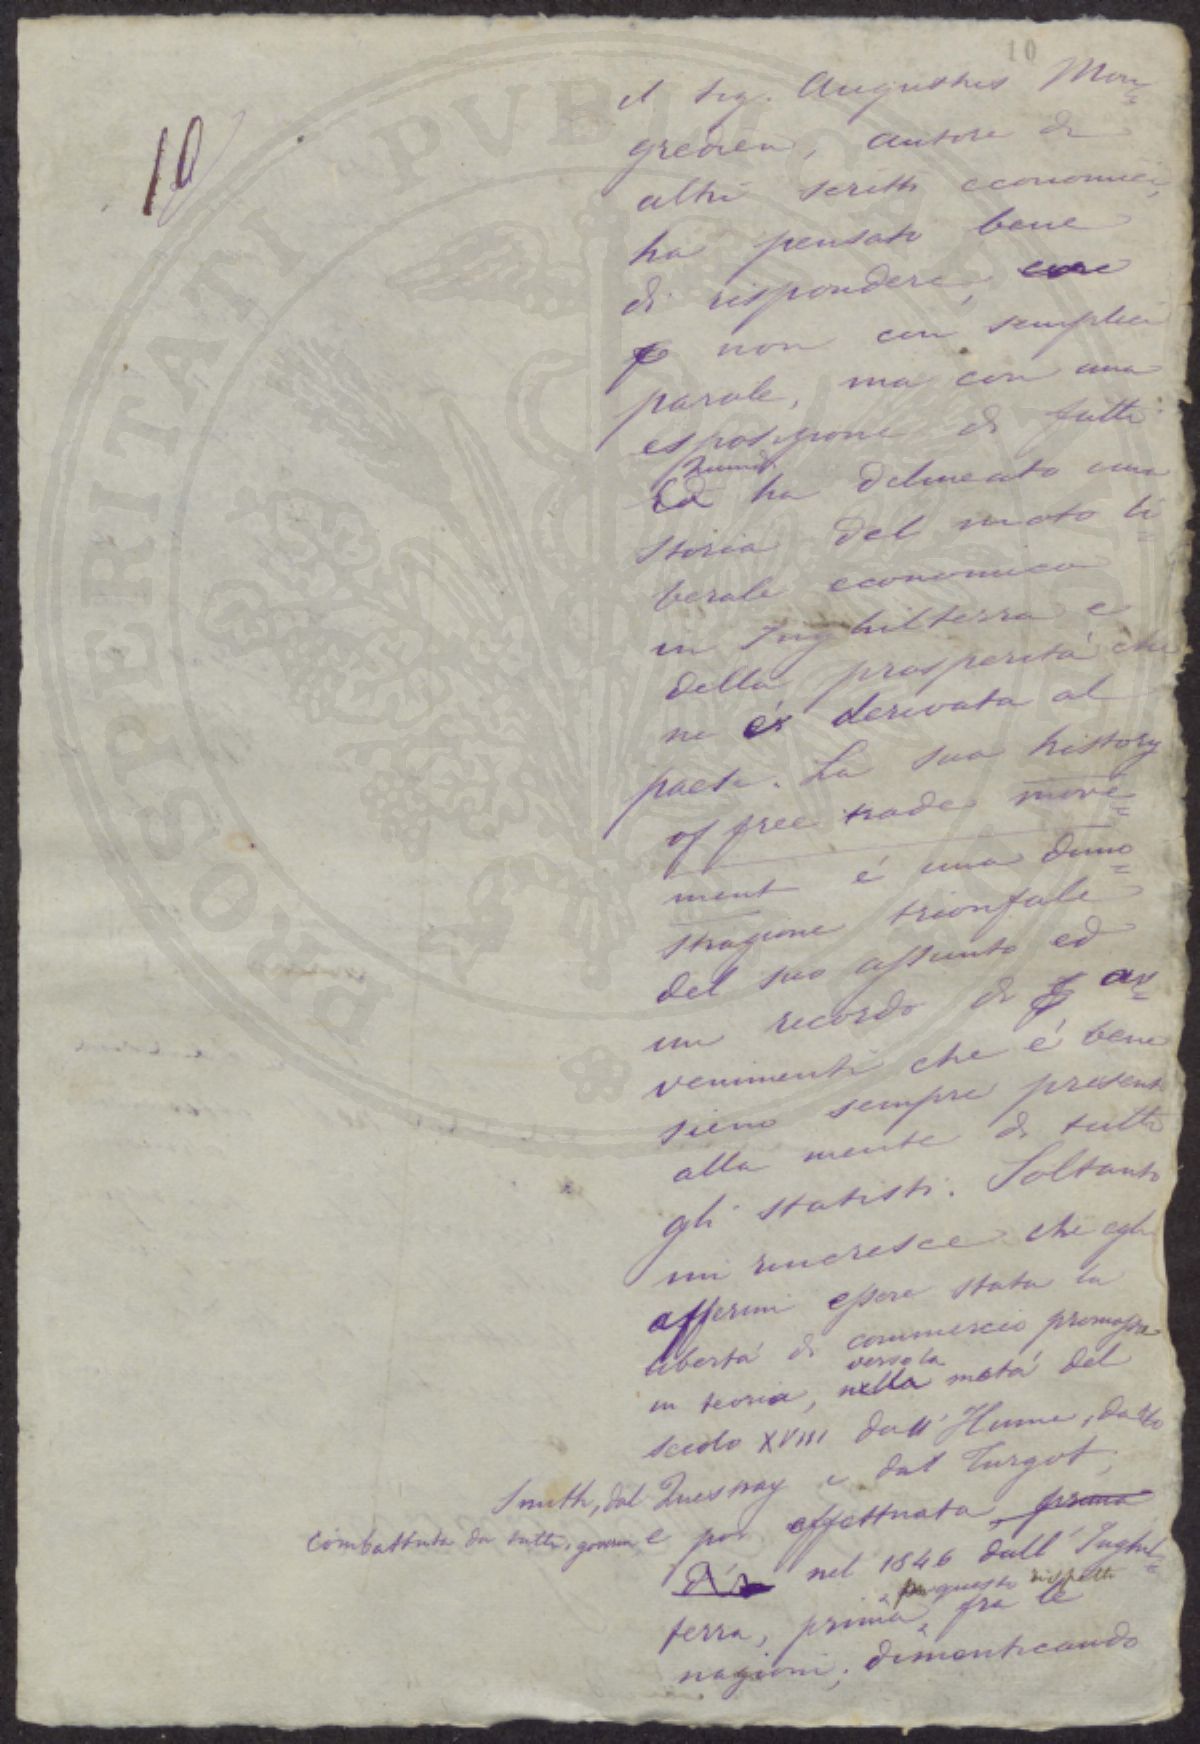 10
10
il sig. Augustus Mon=
gredien, autore di
altri scritti economici,
ha pensato bene
di rispondere,
non con semplici
parole, ma con una
esposizione di fatti
Quindi
Ed ha delineato una
storia del moto li=
berale economico
in Inghilterra e
della prosperità che
ne è derivata al
paese. La sua history
of free trade move=
ment é una dimo=
strazione trionfale
del suo assunto ed
un ricordo di av=
venimenti che é bene
sieno sempre presenti
alla mente di tutti
gli statisti. Soltanto
mi rincresce che egli
affermi essere stata la
libertá di commercio promossa
verso la
in teoria, nella metá del
secolo XVIII dall' Hume, dallo
Smith, dal Quesnay e dal Turgot,
combattuta da tutti i governi e poi effettuata, prima
nel 1846 dall' Inghil=
per questo rispetto
terra, prima, fra le
nazioni; dimenticando
PROSPERITATI PVBLICAE